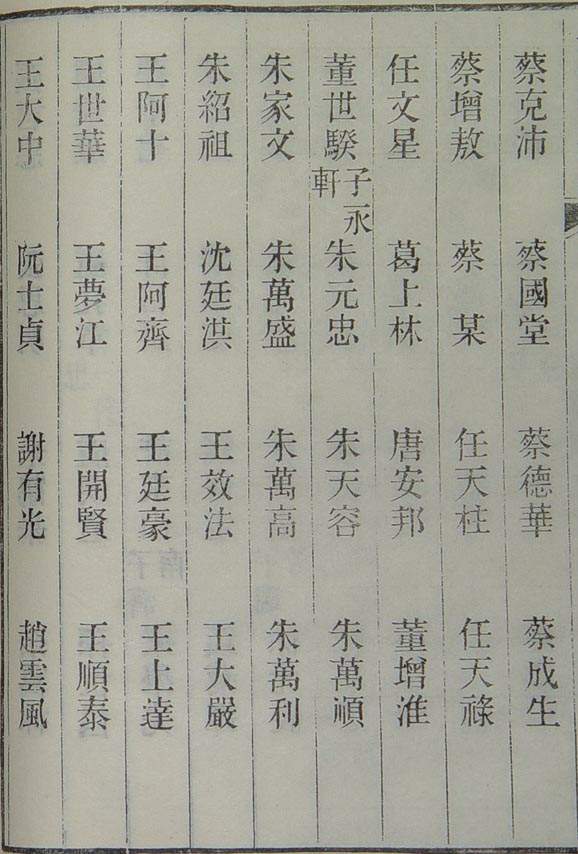 蔡克沛 蔡國堂 蔡德華 蔡成生
蔡增敖 蔡某 任天柱 任天祿
任文星 葛上林 唐安邦 董增淮
董世騤子永軒 朱元忠 朱天容 朱萬順
朱家文 朱萬盛 朱萬高 朱萬利
朱紹祖 沈廷洪 王效法 王大嚴
王阿十 王阿齊 王廷豪 王上達
王世華 王夢江 王開賢 王順泰
王大中 阮士貞 謝有光 趙雲風